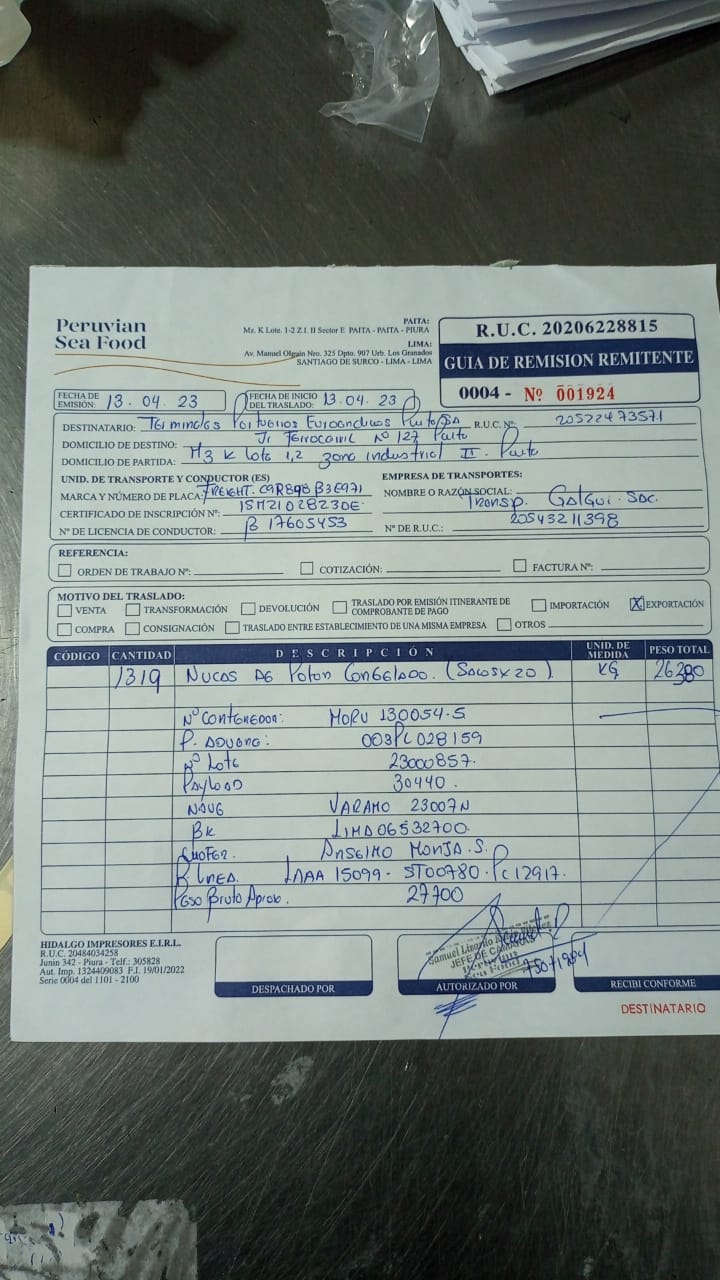 Peruvian
Sea Food
PAITA:
Mz. K Lote. 1-2 Z.I. II Sector E PAITA - PAITA - PIURA
LIMA:
Av. Manuel Olguin Nro. 325 Dpto. 907 Urb. Los Granados
SANTIAGO DE SURCO - LIMA - LIMA
R.U.C. 20206228815
GUIA DE REMISION REMITENTE
0004 - Nº 001924
FECHA DE EMISIÓN: 13.04.23
FECHA DE INICIO DEL TRASLADO: 13.04.23
DESTINATARIO: Terminales Portuarios Euroandinos Paita SA R.U.C. Nº: 20522473571
DOMICILIO DE DESTINO: Jr Ferrocarril Nº 127 Paita
DOMICILIO DE PARTIDA: Mz K Lote 1,2 zona industrial II. Paita
UNID. DE TRANSPORTE Y CONDUCTOR (ES)
MARCA Y NÚMERO DE PLACA: FREIGHT. C9R898 B3E971
CERTIFICADO DE INSCRIPCIÓN Nº: 15M21028230E
Nº DE LICENCIA DE CONDUCTOR: B 17605453
EMPRESA DE TRANSPORTES:
NOMBRE O RAZÓN SOCIAL: Transp. Galgui. Sac.
Nº DE R.U.C.: 20543211398
REFERENCIA:
ORDEN DE TRABAJO Nº: COTIZACIÓN: FACTURA Nº:
MOTIVO DEL TRASLADO:
VENTA TRANSFORMACIÓN DEVOLUCIÓN TRASLADO POR EMISIÓN ITINERANTE DE COMPROBANTE DE PAGO IMPORTACIÓN X EXPORTACIÓN
COMPRA CONSIGNACIÓN TRASLADO ENTRE ESTABLECIMIENTO DE UNA MISMA EMPRESA OTROS
CÓDIGO CANTIDAD DESCRIPCIÓN UNID. DE MEDIDA PESO TOTAL
1319 Nucas de Poton Congelado. (Sacos x 20). KG 26380
Nº Contenedor: MORU 130054-5
P. Aduana: 003PL028159
Nº Lote 23000857.
Payload 30440.
Nave VARAMO 23007N
BK LIMA06532700.
Chofer. Anselmo Monja.S.
P. Linea. LAAA 15099 - ST00780 - PC12917.
Peso Bruto Aprox. 27700
HIDALGO IMPRESORES E.I.R.L.
R.U.C. 20484034258
Junin 342 - Piura - Telf.: 305828
Aut. Imp. 1324409083 F.I. 19/01/2022
Serie 0004 del 1101 - 2100
DESPACHADO POR
Samuel Lizardo
JEFE DE CAMARAS
AUTORIZADO POR
RECIBI CONFORME
DESTINATARIO